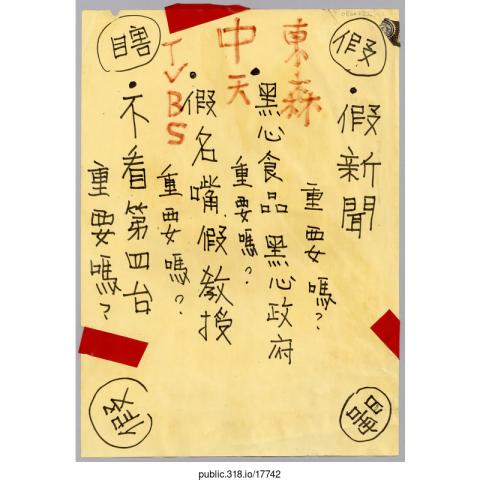 假
東森
中天
TVBS
瞎
假新聞
重要嗎？
黑心食品 黑心政府
重要嗎？
假名嘴、假教授
重要嗎？
不看第四台
重要嗎？
假
public.318.io/17742